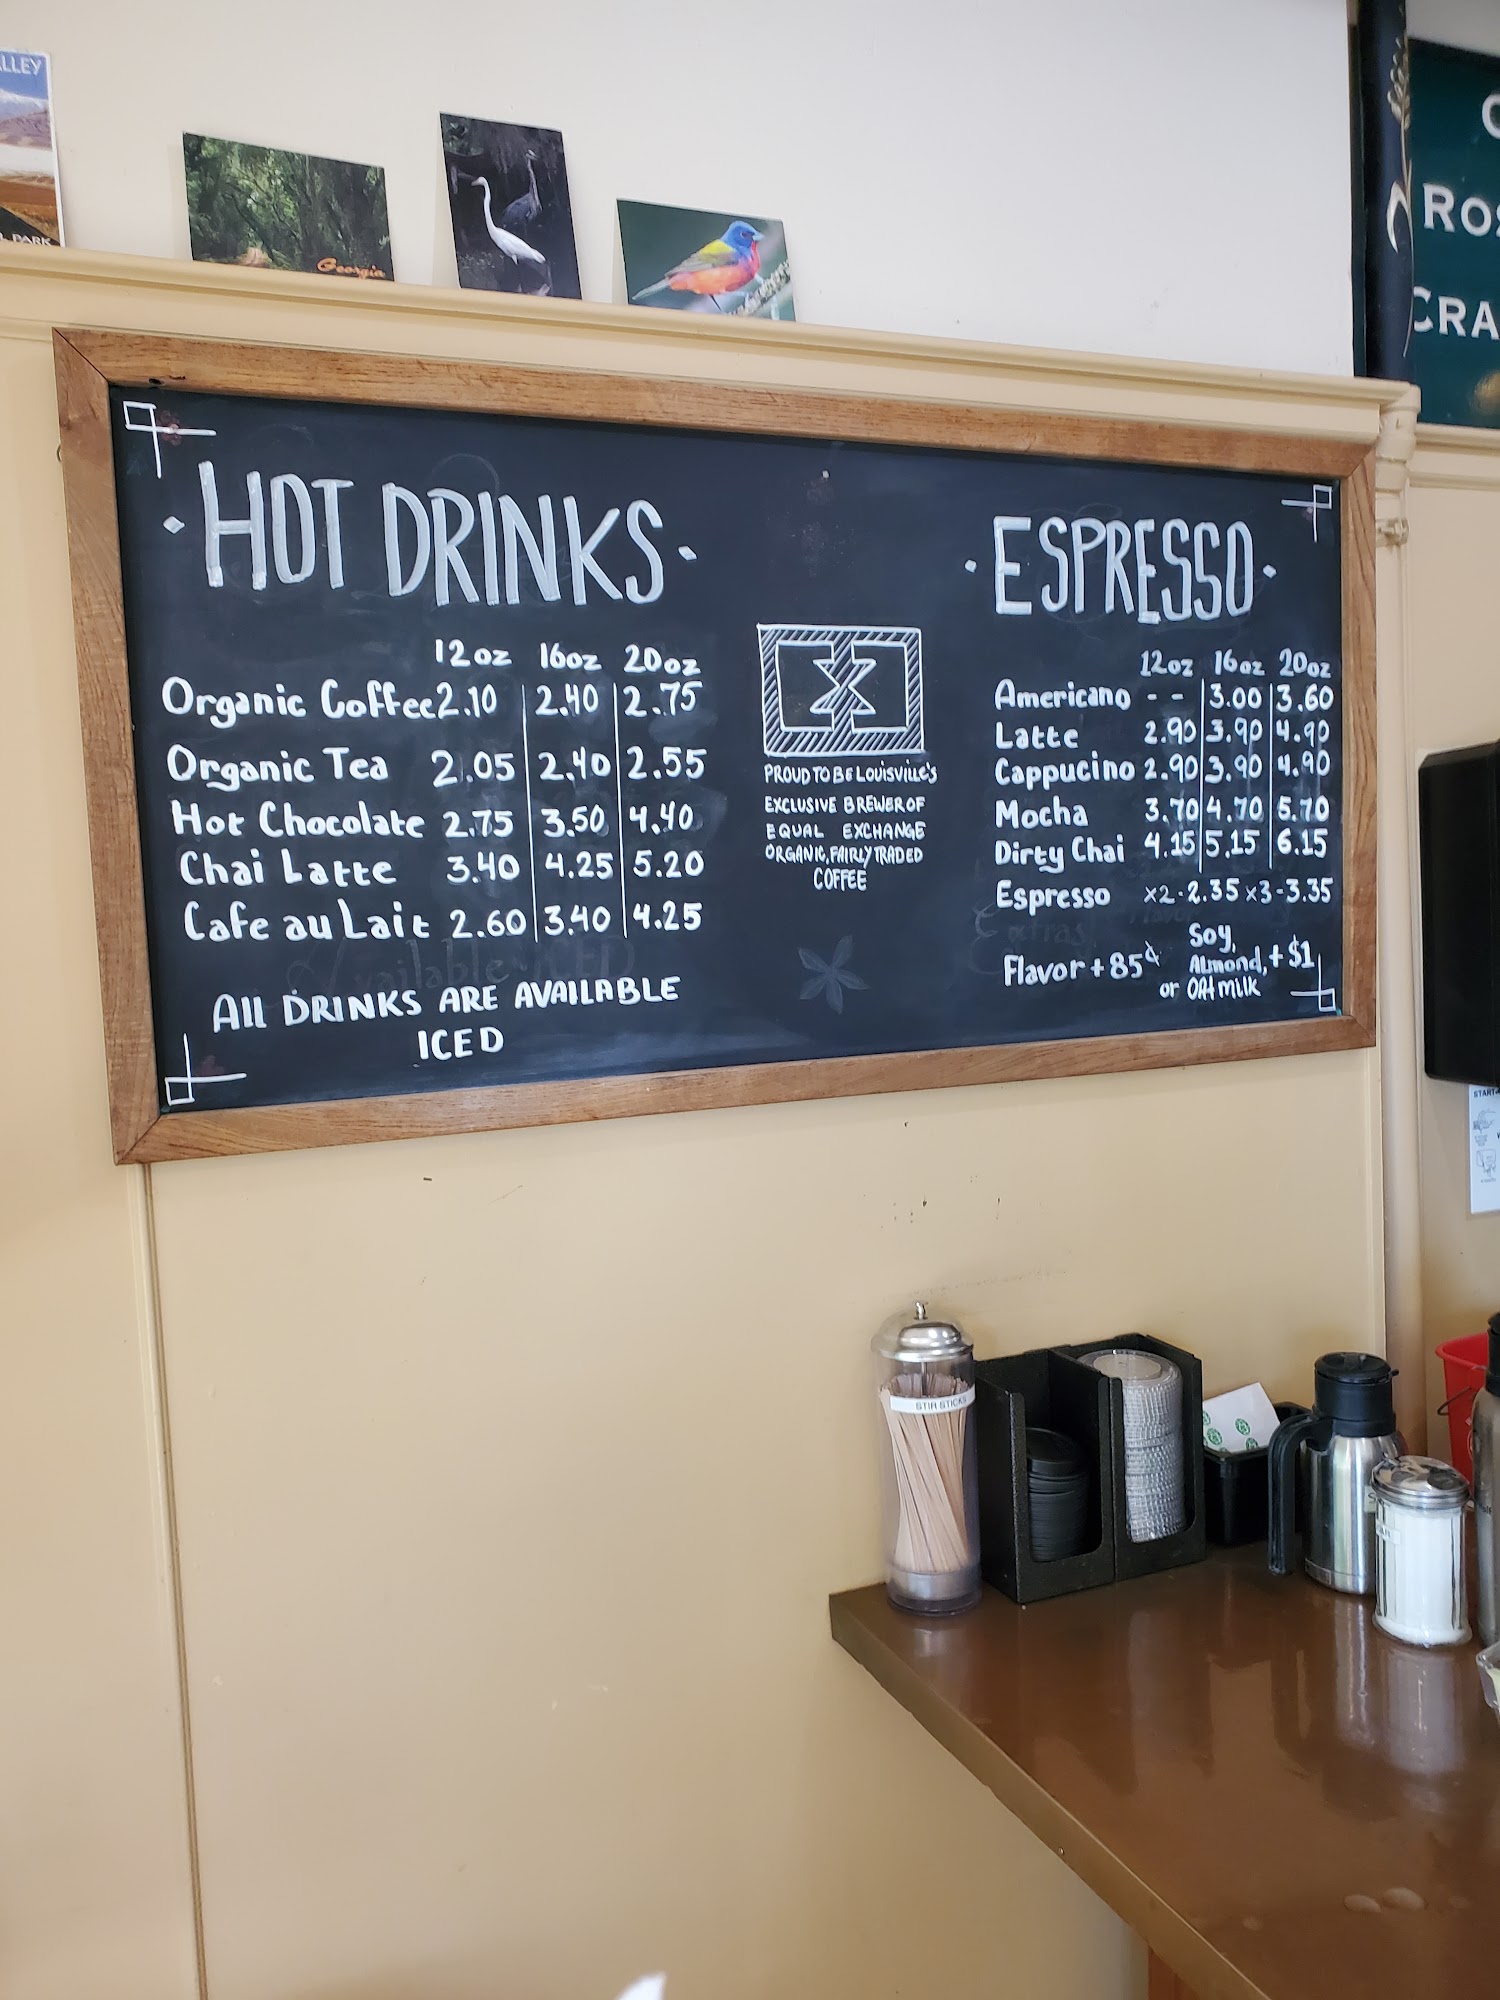 LLEY
PARK
Georgia
ROS
CRA
HOT DRINKS
12oz 16oz 20oz
Organic Coffee 2.10 2.40 2.75
Organic Tea 2.05 2.40 2.55
Hot Chocolate 2.75 3.50 4.40
Chai Latte 3.40 4.25 5.20
Cafe au Lait 2.60 3.40 4.25
All DRINKS ARE AVAILABLE
ICED
PROUD TO BE LOUISVILLE'S
EXCLUSIVE BREWER OF
EQUAL EXCHANGE
ORGANIC, FAIRLY TRADED
COFFEE
ESPRESSO
12oz 16oz 20oz
Americano -- 3.00 3.60
Latte 2.90 3.90 4.90
Cappucino 2.90 3.90 4.90
Mocha 3.70 4.70 5.70
Dirty Chai 4.15 5.15 6.15
Espresso x2-2.35 x3-3.35
Flavor + 85¢
Soy,
Almond, + $1
or OAt milk
START
STIR STICKS